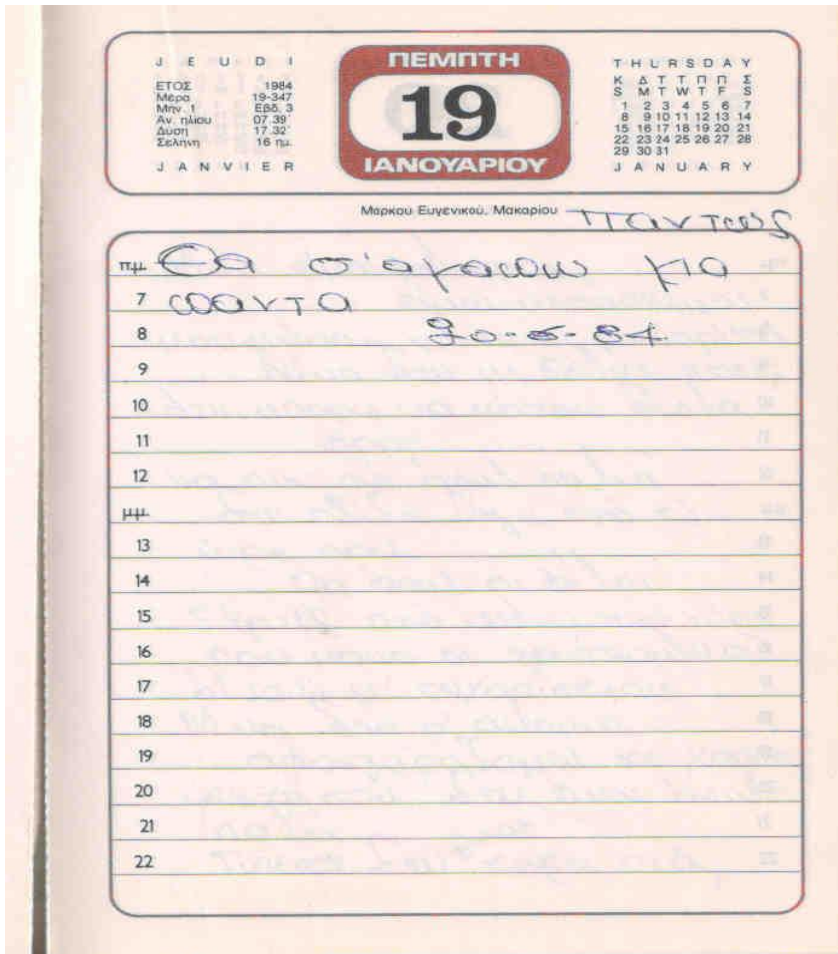 J E U D I
ΕΤΟΣ 1984
Μέρα 19-347
Μήν. 1 Εβδ. 3
Αν. ηλίου 07.39'
Δύση 17.32'
Σελήνη 16 ημ.
J A N V I E R
ΠΕΜΠΤΗ
19
ΙΑΝΟΥΑΡΙΟΥ
T H U R S D A Y
Κ Δ Τ Τ Π Π Σ
S M T W T F S
1 2 3 4 5 6 7
8 9 10 11 12 13 14
15 16 17 18 19 20 21
22 23 24 25 26 27 28
29 30 31
J A N U A R Y
Μάρκου Ευγενικού, Μακαρίου
πμ Θα σ'αγαπώ για
7 πάντα
8 20-6-84
9
10
11
12
μμ
13
14
15
16
17
18
19
20
21
22